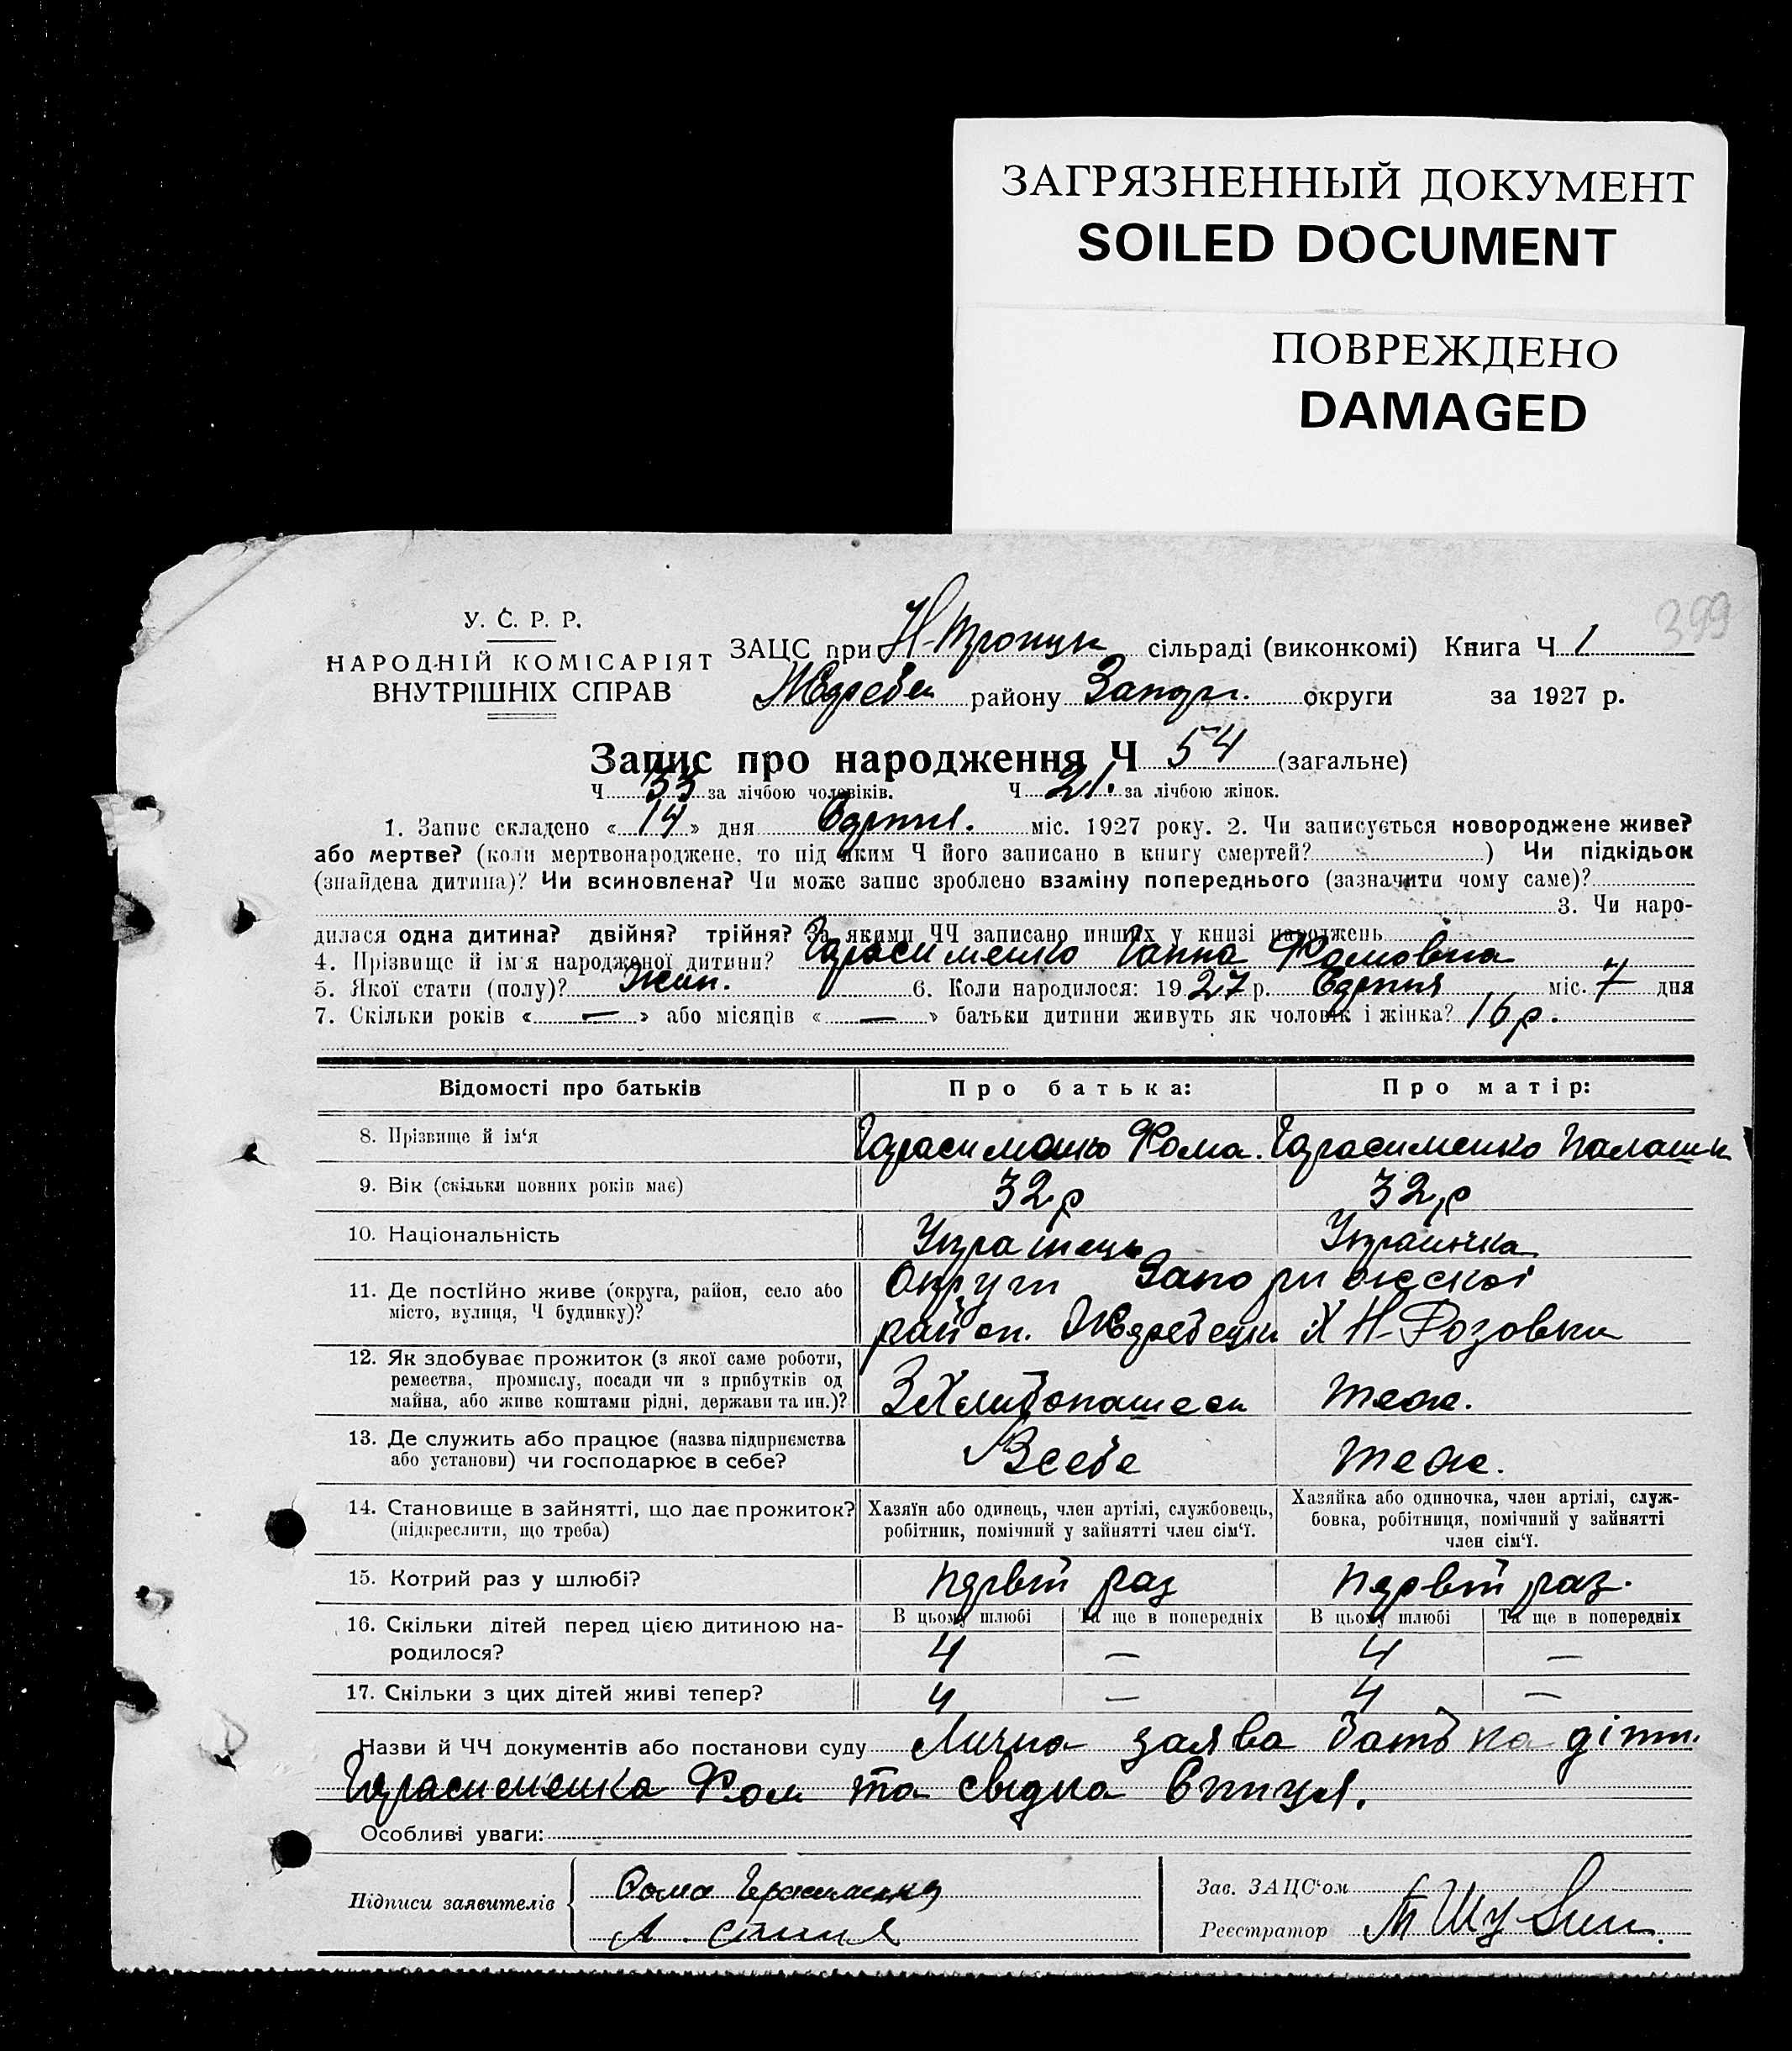 ЗАГРЯЗНЕННЫЙ ДОКУМЕНТ
SOILED DOCUMENT
ПОВРЕЖДЕНО
DAMAGED
399
У. С. Р. Р.
НАРОДНІЙ КОМІСАРІЯТ
ВНУТРІШНІХ СПРАВ
ЗАЦС при Н-Троицьк сільраді (виконкомі) Книга Ч 1
Жеребец району Запор. округи за 1927 р.
Запис про народження Ч 54 (загальне)
Ч 33 за лічбою чоловіків. Ч 21. за лічбою жінок.
1. Запис складено « 14 » дня Серпня. міс. 1927 року. 2. Чи записується новороджене живе?
або мертве? (коли мертвонароджене, то під яким Ч його записано в книгу смертей? ) Чи підкідьок
(знайдена дитина)? Чи всиновлена? Чи може запис зроблено взаміну попереднього (зазначити чому саме)?
3. Чи наро-
дилася одна дитина? двійня? трійня? За якими ЧЧ записано инших у книзі народжень
4. Прізвище й ім'я народженої дитини? Герасименко Ганна Фомовна
5. Якої стати (полу)? Жин. 6. Коли народилося: 1927 р. Серпня міс. 7 дня
7. Скільки років « — » або місяців « — » батьки дитини живуть як чоловік і жінка? 16 р.
Відомості про батьків Про батька: Про матір:
8. Прізвище й ім'я Герасименко Фома. Герасименко Палашк
9. Вік (скільки повних років має) 32 р 32 р
10. Національність Українець Українка
11. Де постійно живе (округа, район, село або Округи Запорижскоі
місто, вулиця, Ч будинку)? район. Жеребецьки Х Н-Розовки
12. Як здобуває прожиток (з якої саме роботи,
ремества, промислу, посади чи з прибутків од
майна, або живе коштами рідні, держави та ин.)? З Хлибопашеси теж.
13. Де служить або працює (назва підприємства
або установи) чи господарює в себе? В себе теж.
14. Становище в зайнятті, що дає прожиток? Хазяїн або одинець, член артілі, службовець, Хазяйка або одиночка, член артілі, служ-
(підкреслити, що треба) робітник, помічний у зайнятті член сім'ї. бовка, робітниця, помічний у зайнятті
член сім'ї.
15. Котрий раз у шлюбі? первий раз первий раз.
16. Скільки дітей перед цією дитиною на- В цьому шлюбі Та ще в попередніх В цьому шлюбі Та ще в попередніх
родилося? 4 — 4 —
17. Скільки з цих дітей живі тепер? 4 — 4 —
Назви й ЧЧ документів або постанови суду Лична заява батька діти.
Герасименка Фом та свідка
Особливі уваги:
Підписи заявителів Фома Герасименко
Зав. ЗАЦС'ом
Реєстратор